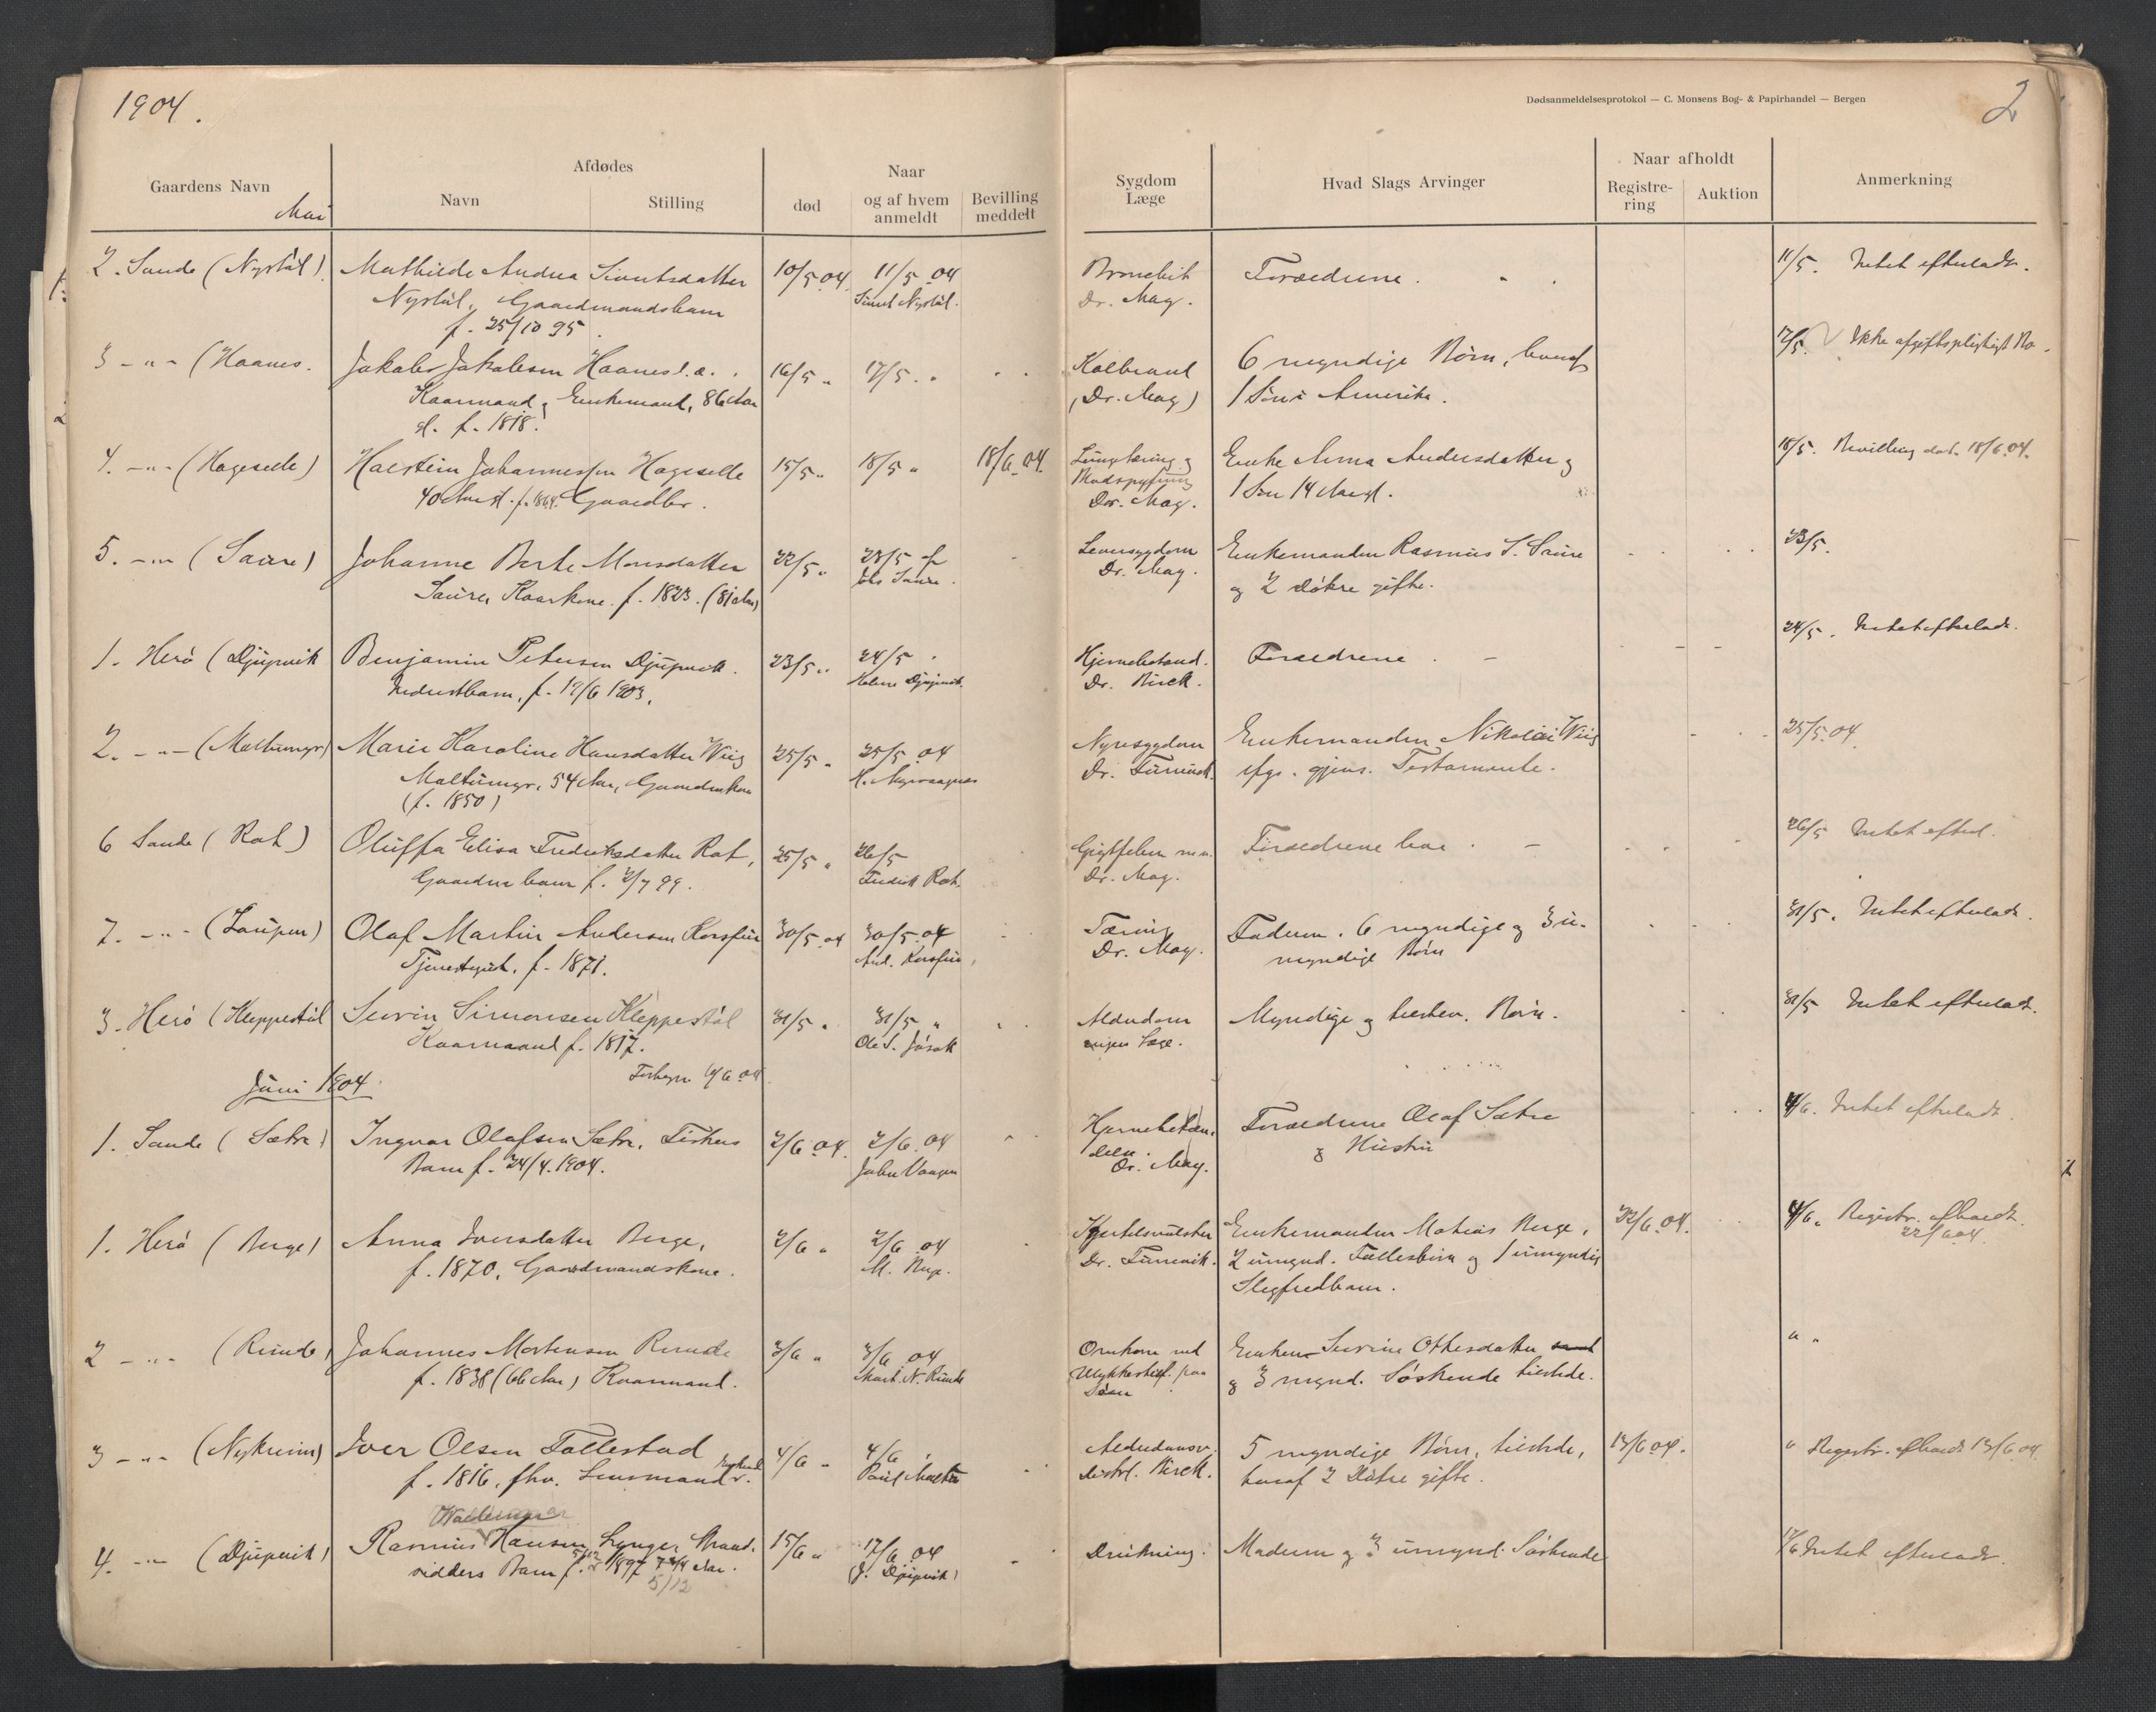 1904.
Dødsanmeldelsesprotokol — C. Monsens Bog- & Papirhandel — Bergen
2
Gaardens Navn
Afdødes
Navn
Stilling
Naar
død
og af hvem anmeldt
Bevilling meddelt
Sygdom
Læge
Hvad Slags Arvinger
Naar afholdt
Registrering
Auktion
Anmerkning
Mai
2. Sande (Nystøl) Mathilde Andrea Sivertsdatter 10/5 04. 11/5 04 Bronchit Forældrene. 11/5. Intet efterladt.
Nystøl, Gaardmandsbarn Sivert Nystøl. Dr. Mag.
f. 25/10 95
3 - " - (Haanes. Jakob Jakobsen Haanes 16/5 " 17/5 " Koldbrand 6 myndige Børn, hvoraf 17/5. Ikke afgiftspligtigt Bo.
Kaarmand, Enkemand, 86 Aar (Dr. Mag) 1 Søn i Amerika.
gl. f. 1818.
4. - " - (Hageselle) Halstein Johannessen Hageselle 15/5 " 18/5 " 18/6 04. Lungetæring og Enke Anna Andersdatter og 18/5. Bevilling dat. 18/6 04.
40 Aar gl. f. 1864. Gaardbr. Dr. Mag. 1 Søn 14 Aar gl.
5. - " - (Saure) Johanne Berte Monsdatter 22/5 " 23/5 af Leversygdom Enkemanden Rasmus S. Saure 23/5.
Saure, Kaarkone f. 1823. (81 Aar) Johs Saure. Dr. Mag. og 2 Døtre gifte.
1. Herø (Djupvik Benjamin Petersen Djupvik. 23/5 " 24/5 " Hjernebetænd. Forældrene. 24/5. Intet efterladt.
Inderstbarn, f. 19/6 1903. Djupvik. Dr. Birck.
2. - " - (Moltumyr) Marie Karoline Hansdatter Wiig 25/5 " 25/5 04 Nyresygdom Enkemanden Nikolai Wiig 25/5 04.
Moltumyr, 54 Aar, Gaardm.kone Dr. ifgr. gjens. Testamente.
(f. 1850)
6 Sande (Rot) Oluffa Elisa Fredriksdatter Rot, 25/5 " 26/5 Gigtfeber m.m. Forældrene har 26/5 Intet efterl.
Gaardm. barn f. 2/7 99. Fredrik Rot. Dr. Mag.
7. - " - (Laupen) Olaf Martin Andersen Korsfur 30/5 04 30/5 04 Tæring Faderen. 6 myndige og 3 u- 31/5. Intet efterladt.
Tjenestegut. f. 1871. And. Korsfur, Dr. Mag. myndige Børn
3. Herø (Kleppestøl Severin Simonsen Kleppestøl 31/5 " 31/5 " Alderdom Myndige og tilstedev. Børn. 31/5 Intet efterladt.
Kaarmand f. 1817. Ole S. Jøsok ingen Læge.
Juni 1904.
1. Sande (Sætre) Ingvar Olafsen Sætre, Fiskers 2/6 04. 2/6 04 Hjernebetæn- Forældrene Olaf Sætre 4/6. Intet efterladt.
Barn f. 24/4. 1904. Vaagen delse. Dr. Mag. og Hustru
1. Herø (Berge) Anna Iversdatter Berge, 2/6 " 2/6 04 Kjertelsvulster Enkemanden Matias Berge, 22/6 04. 4/6. Registr. afholdt 22/6 04.
f. 1870. Gaardmandskone. M. Berge. Dr. 2 umynd. Fællesbørn og 1 umyndig
Slegfredbarn.
2 - " - (Runde) Johannes Mortensen Runde 3/6 " 3/6 04 Omkom ved Enken Severine Ottesdatter " "
f. 1838 (66 Aar) Kaarmand. Mart. N. Runde Ulykkestilf. paa Søen og 3 mynd. Søskende tilstede.
3 - " - (Nykreim) Iver Olsen Tallestad 4/6 " 4/6 5 myndige Børn, tilstede, 13/6 04. " Registr. afholdt 13/6 04
f. 1816, fhv. Lensmand. distrl. Birck. hvoraf 2 Døtre gifte.
Waldemar
4. - " - (Djupvik) Rasmus Hansen Strand- 15/6 " 17/6 04 Drukning. Moderen og 3 umynd. Søskende 17/6 Intet efterladt.
sidders Barn f. 1897 Aar. (J. Djupvik)
5/12